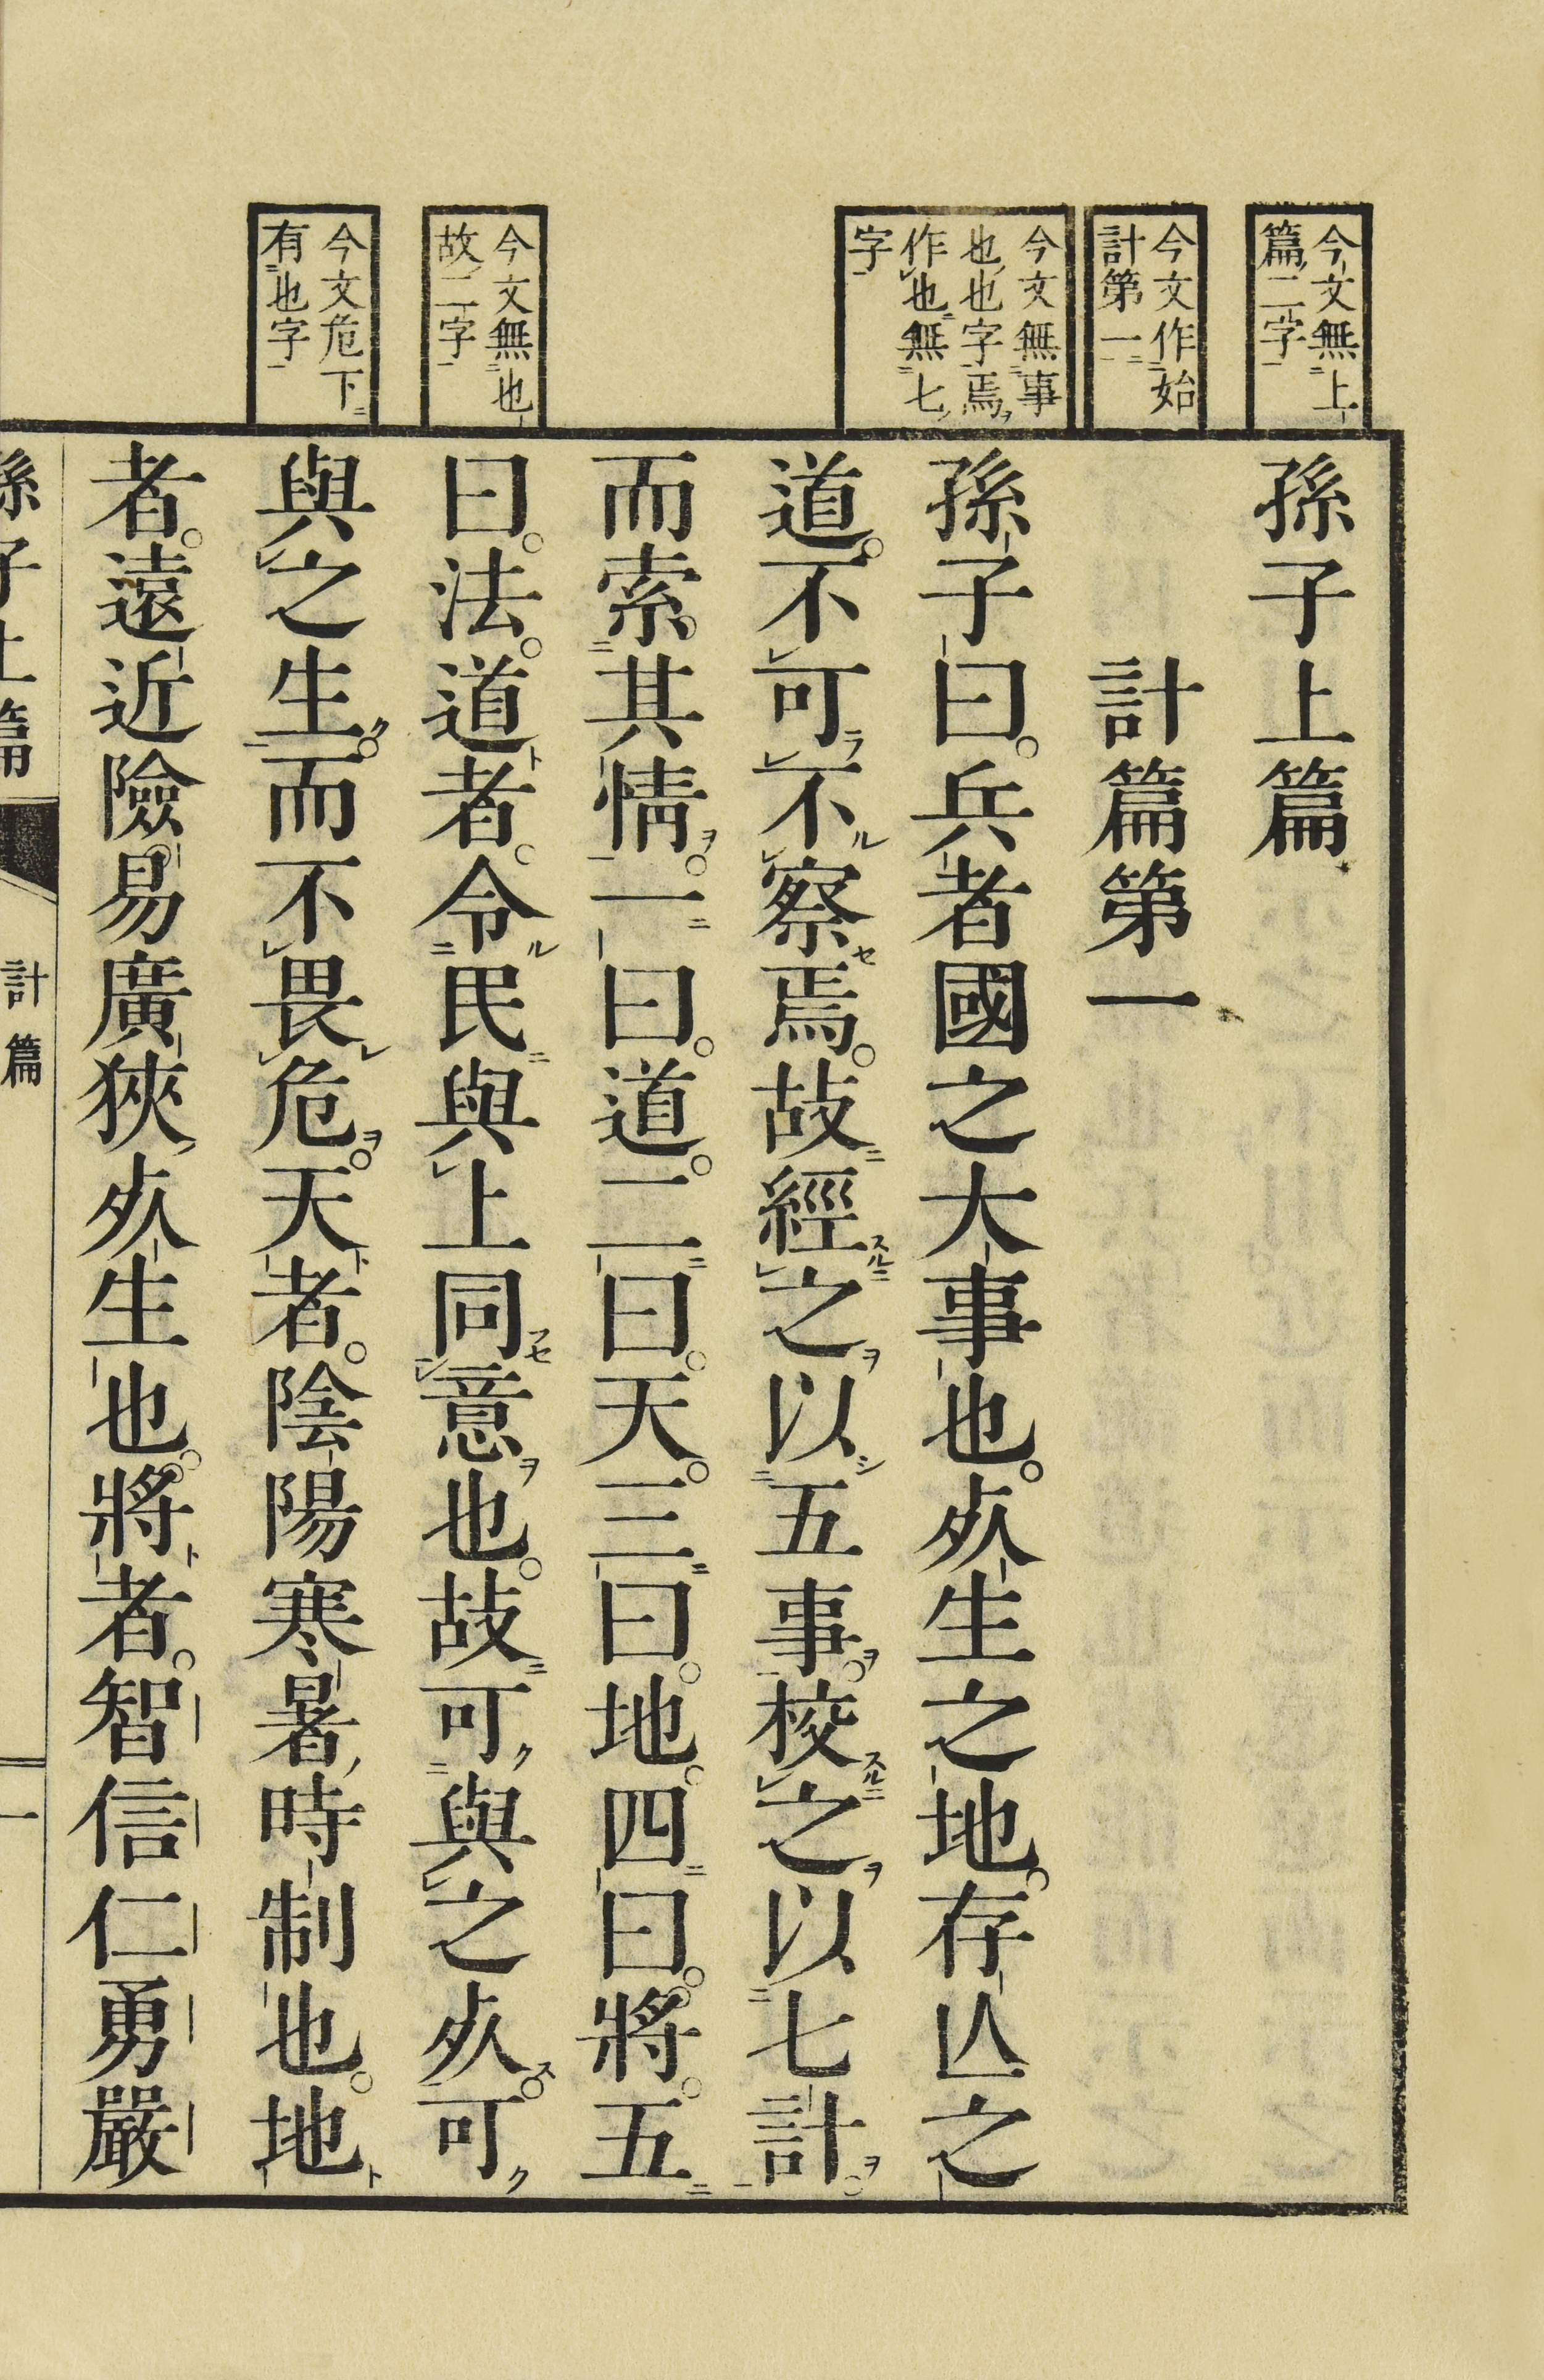 今文無上
篇二字
今文作始
計第一
今文無事
也也字焉
作也無七
字
今文無也
故二字
今文危下
有也字
孫子上篇
計篇第一
孫子曰。兵者國之大事也。死生之地。存亾之
道。不可不察焉。故經之以五事。校之以七計。
而索其情。一曰。道。二曰。天。三曰。地。四曰。將。五
曰。法。道者。令民與上同意也。故可與之死。可
與之生。而不畏危。天者。陰陽寒暑時制也。地
者。遠近險易廣狹死生也。將者。智信仁勇嚴
孫子上篇 計篇 一